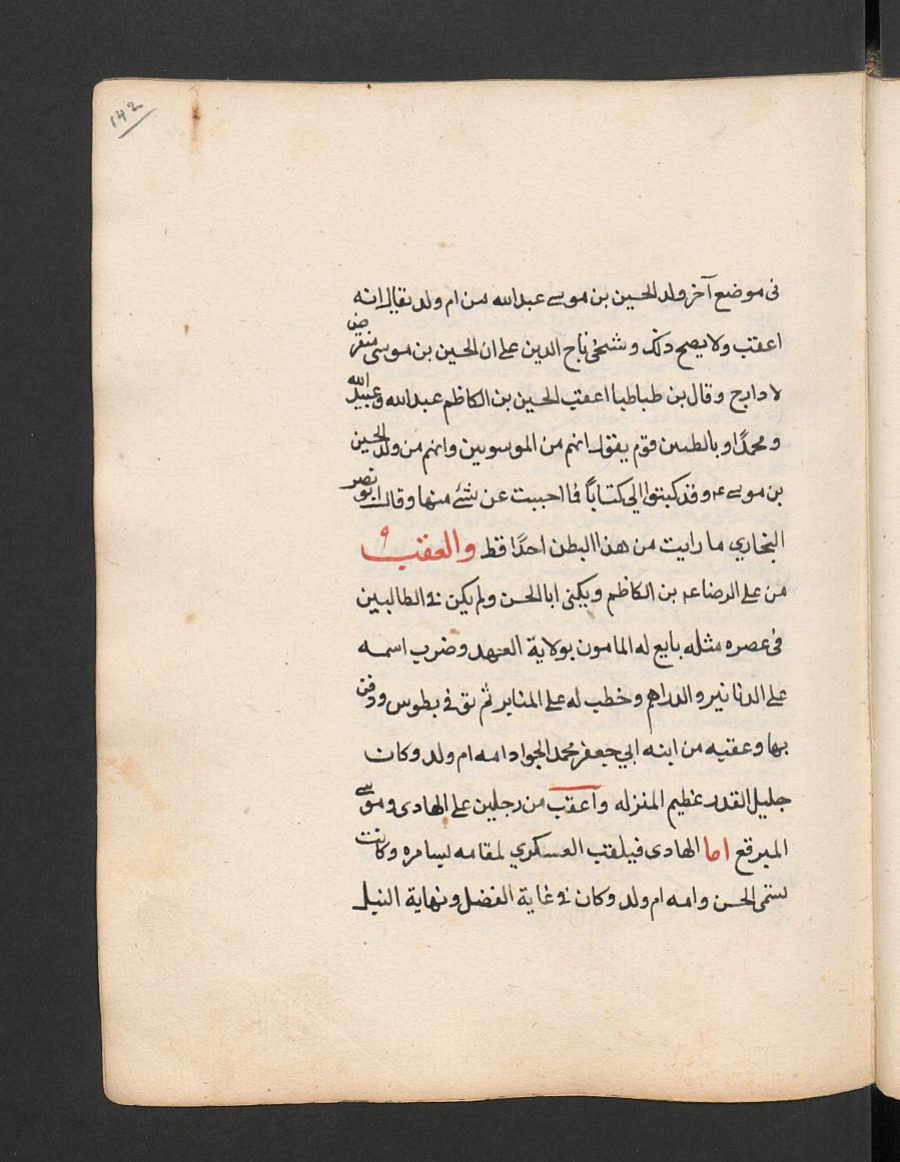 ١٤٢
فى موضع آخر ولد الحسين بن موسے عبدالله من ام ولد يقال انه
اعقب ولا يصح ذلك وشيخى تاج الدين على ان الحسين بن موسى منقرض
لا دارج وقال بن طباطبا اعقب الحسين بن الكاظم عبدالله وعبيدالله
ومحمدًا وبالطبسين قوم يقول انهم من الموسويين وانهم من ولد الحسين
بن موسے ع وقد كتبتوا الي كتاباً فما اجبت عن شئ منها وقال ابونصر
البخاري ما رايت من هذا البطن احدًا قط والعقب
من على الرضا ع بن الكاظم ويكنى ابا الحسن ولم يكن فى الطالبين
فى عصره مثله بايع له المامون بولاية العهد وضرب اسمه
على الدنانير والدراهم وخطب له على المنابر ثم توفى بطوس ودفن
بها وعقبه من ابنه ابي جعفر محمد الجواد امه ام ولد وكان
جليل القدر عظيم المنزله واعقب من رجلين على الهادى وموسے
المبرقع اما الهادى فيلقب العسكري لمقامه بسامره وكانت
تسمى الحسن وامه ام ولد وكان فى غاية الفضل ونهاية النبل